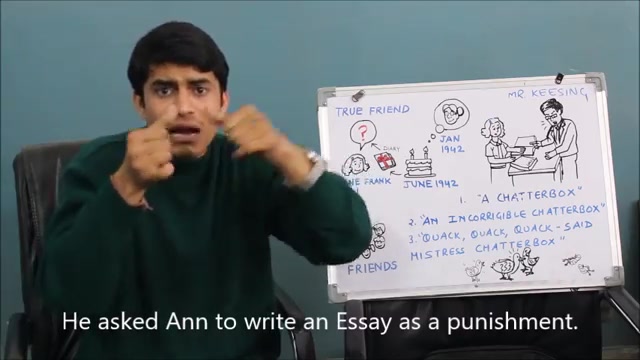 TRUE FRIEND
MR. KEESING
?
DIARY
JAN
1942
NE FRANK
JUNE 1942
1. "A CHATTERBOX"
2. "AN INCORRIGIBLE CHATTERBOX"
3. "QUACK, QUACK, QUACK - SAID
MISTRESS CHATTERBOX"
FRIENDS
He asked Ann to write an Essay as a punishment.